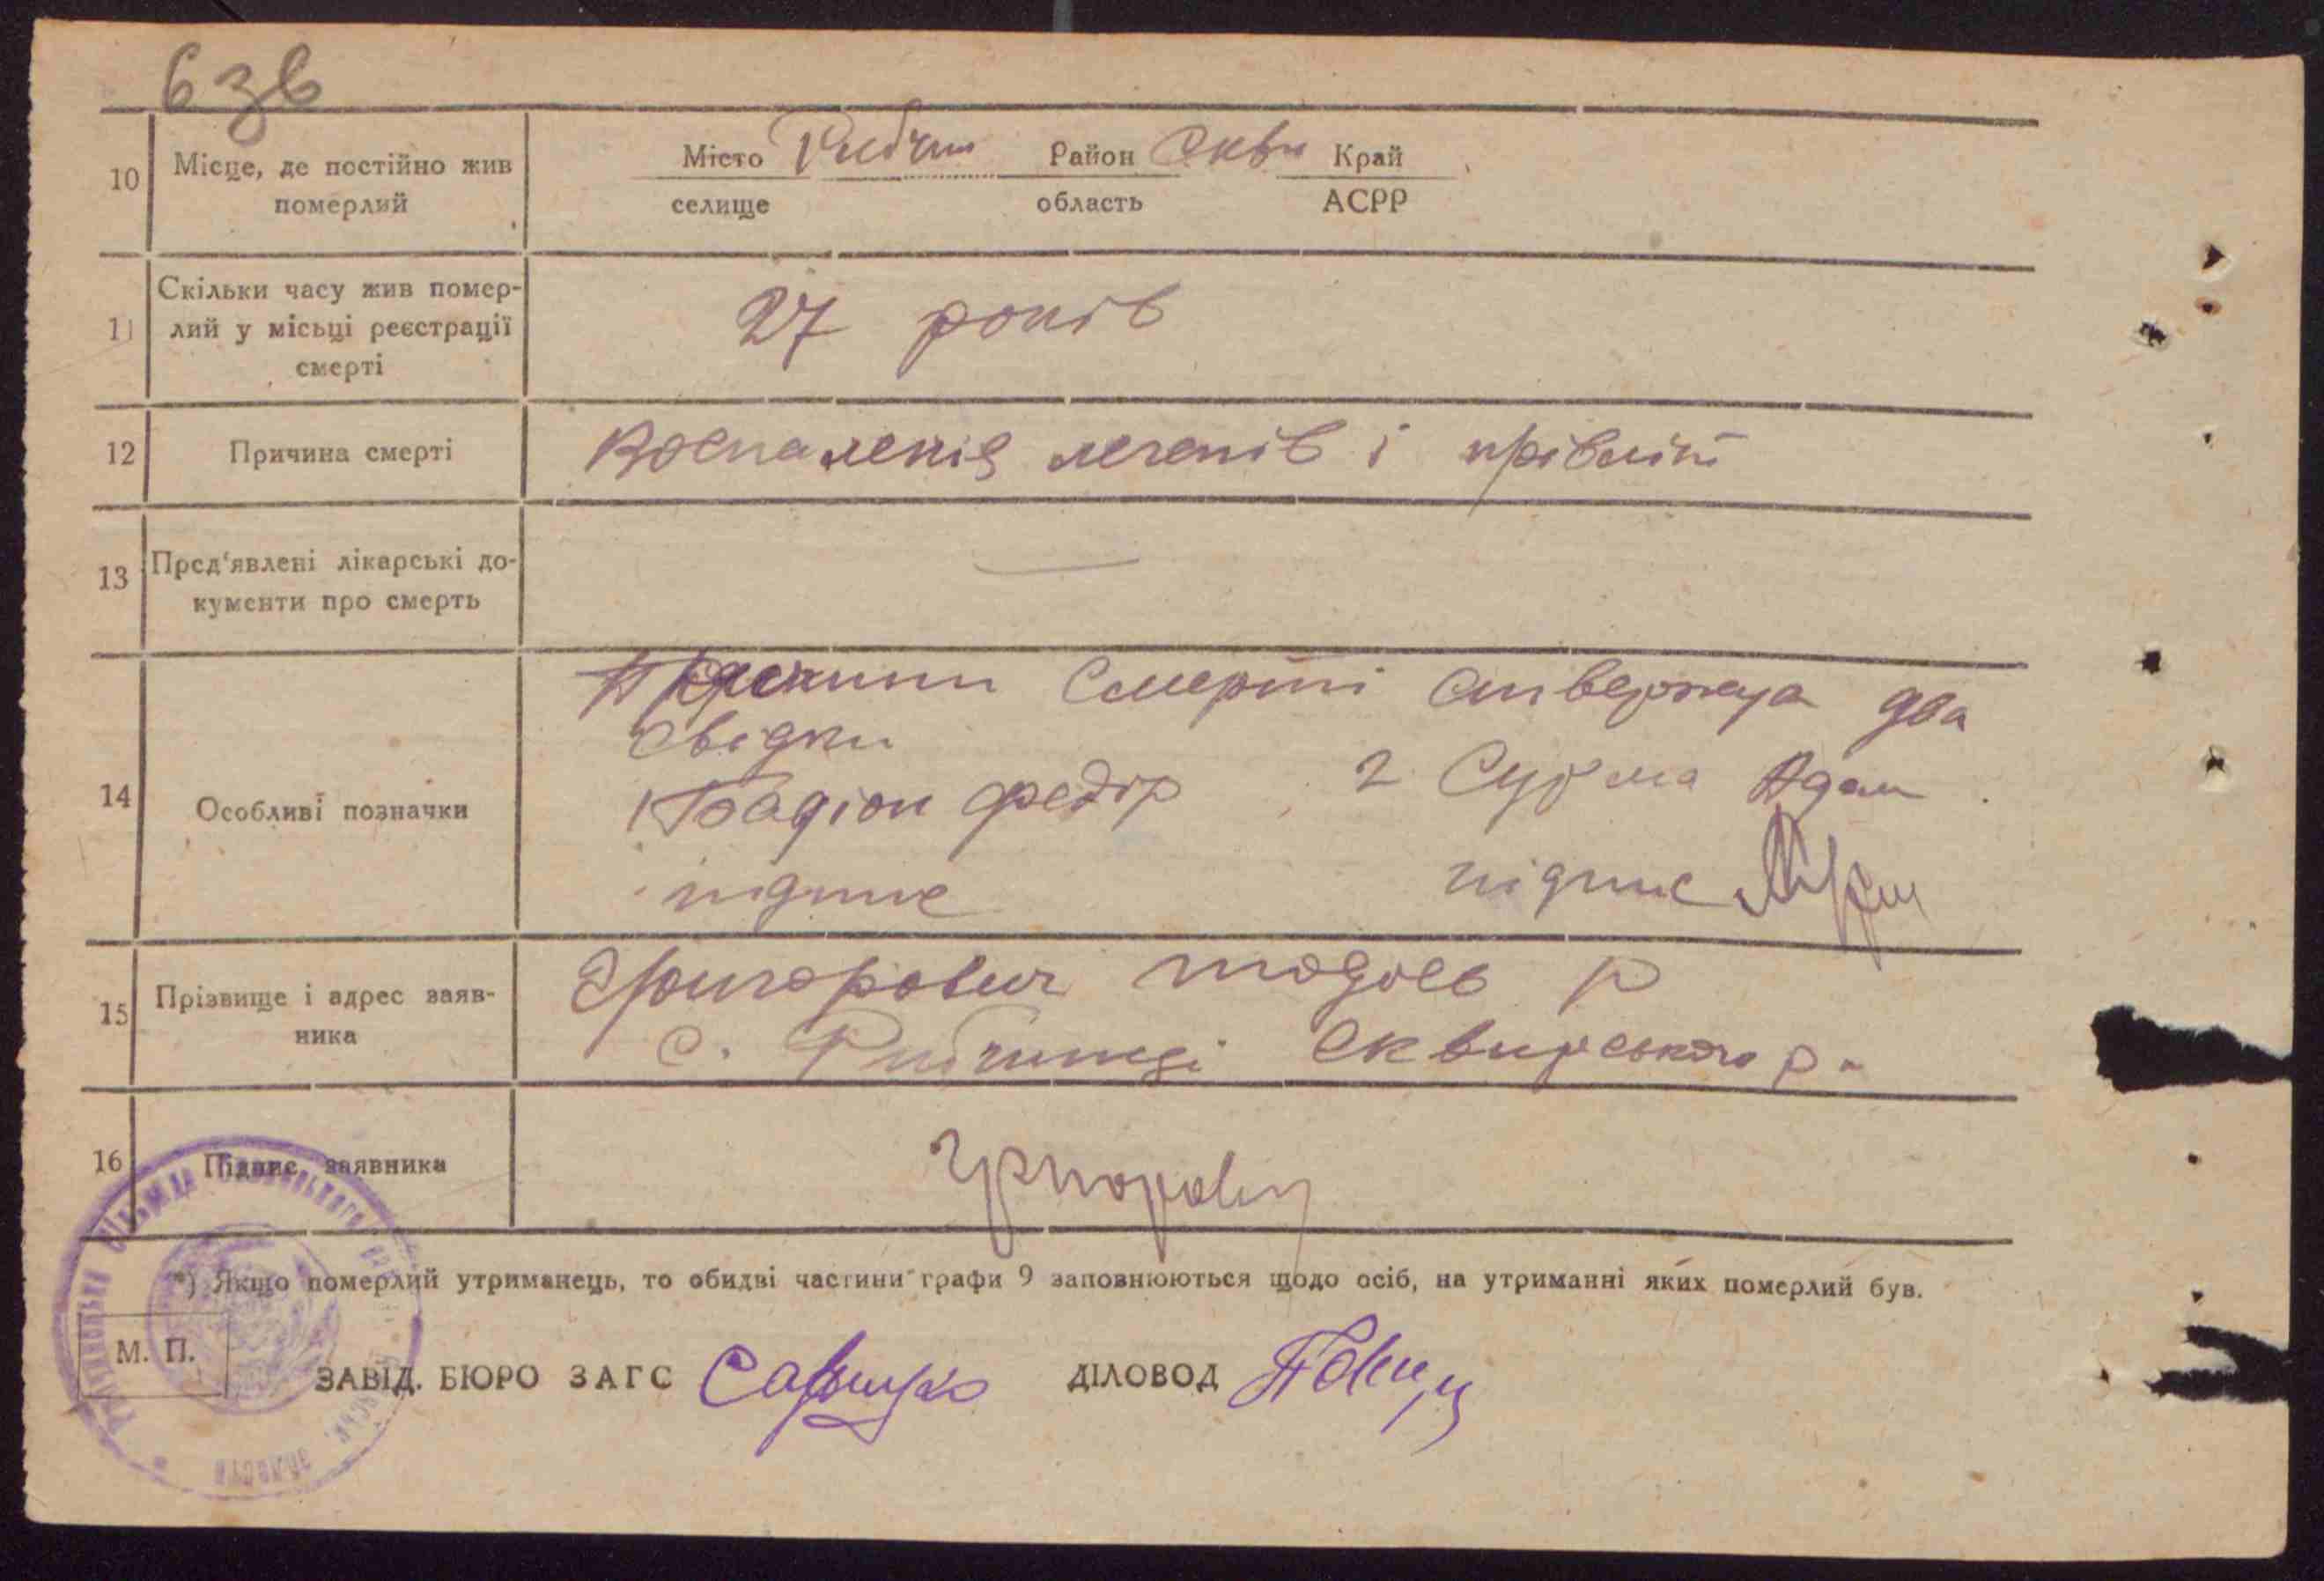 6 зв
10 Місце, де постійно жив померлий Місто селище Рибчин Район область Скви Край АСРР
11 Скільки часу жив помер-
лий у місьці реєстрації
смерті 27 років
12 Причина смерті Воспаленія легенів і
13 Пред'явлені лікарські до-
кументи про смерть —
14 Особливі позначки
Смерті два
свідки
1 Бадіон Федір 2 Сурма Адам
підпис підпис
15 Прізвище і адрес заяв-
ника
Григорович р
с. Рибчинці Сквирського р-
16 Підпис заявника Григорович
*) Якщо померлий утриманець, то обидві частини графи 9 заповнюються щодо осіб, на утриманні яких померлий був.
М. П.
ЗАВІД. БЮРО ЗАГС ДІЛОВОД